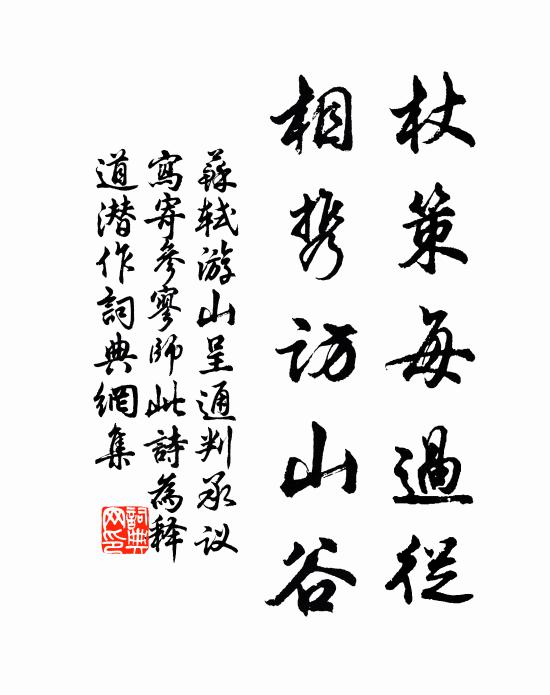 杖策每過從
相携訪山谷
蘇軾游山呈通判承议
寫寄參寥師此詩為釋
道潜作詞典網集
詞典網印